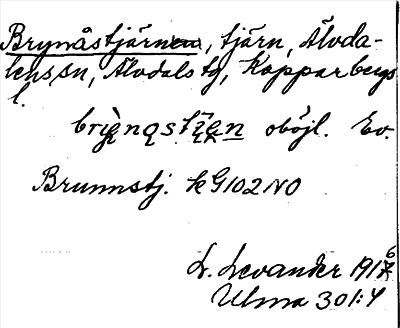 Brynåstjärnen, tjärn, Älvda-
lens sn, Älvdals tg, Kopparbergs
l.
oböjl. Ev.
Brunnstj. kG102NO
L. Levander 1916
Ulma 301:4